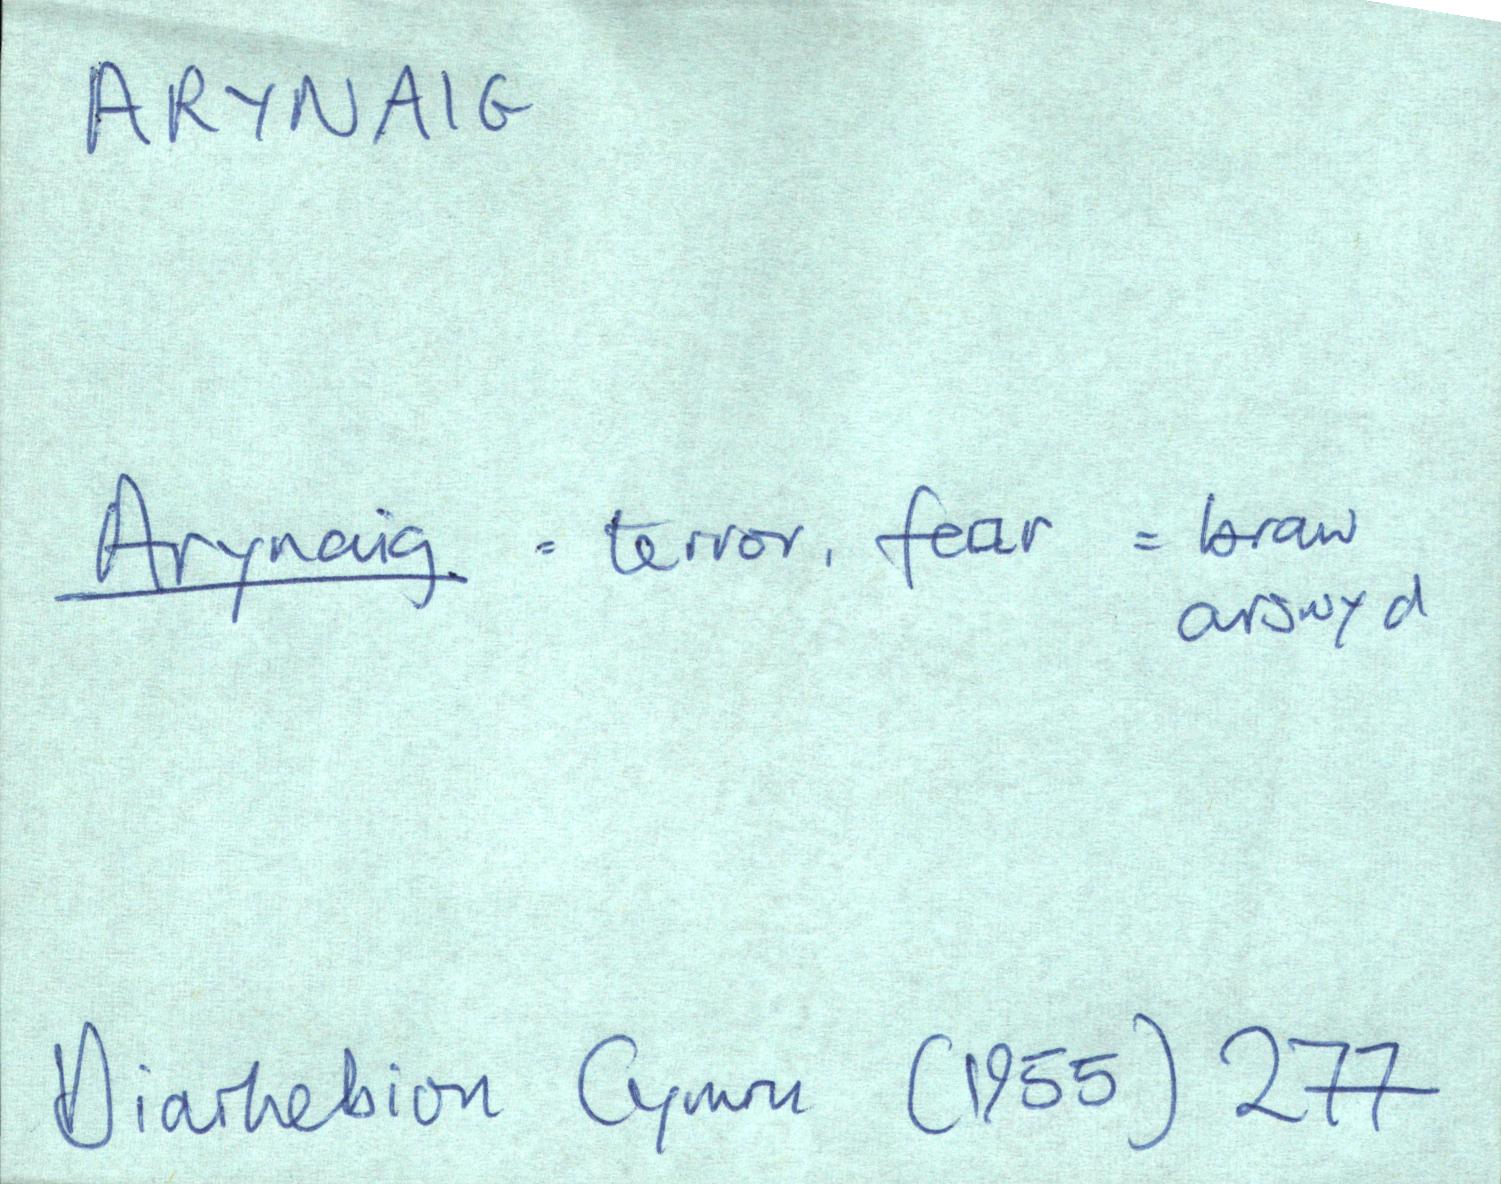 ARYNAIG
Arynaig. = terror, fear = braw
arswyd
Diarhebion Cymru (1955) 277